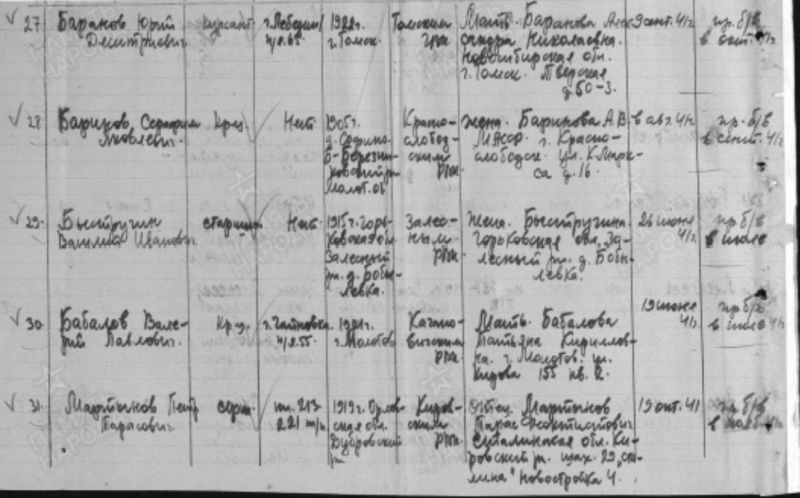 27 Баранов Юрий Дмитриевич курсант г. Лебедин п/я 65 1922г. г. Томск. Томским РВК Мать. Баранова Алек-
сандра Николаевна.
Новосибирская обл.
г. Томск. Тверская
д. 50-3. 9 сент. 41г. пр. б/в
в окт. 41г.
28 Баринов Серафим Яковлевич. Кр-ц. Нет 1905г.
Красно-
слобод-
ским
РВК. жена. Баринова А.В.
МАССР. г. Красно-
слободск. ул. К. Марк-
са д. 16. в авг. 41г. пр. б/в
в сент. 41г.
29. Быстругин
Василий Иванович старшина Нет 1915г. Горь-
ковская обл.
Залесный
р-н. д. Бобы-
левка. Залес-
ным
РВК. Жена. Быстругина.
Горьковская обл. За-
лесный р-н. д. Бобы-
левка. 26 июня
41г. пр. б/в
в июле
30. Бабалов Вале-
рий Павлович. Кр-ц. п/я 55. 1921г.
г. Молотов Кагано-
вичским
РВК. Мать. Бабалова
Татьяна Кириллов-
на. г. Молотов. ул.
Кирова 155 кв. 2. 19 июня
41г. пр. б/в
в июле 41г.
31. Мартынов Петр
Тарасович. серж. 213
221 п/п 1919г. Орлов-
ская обл.
Дубровский
р-н Киров-
ским
РВК. Отец. Мартынов
Тарас
Сталинская обл. Ки-
ровский р. шах. 29 „Ста-
лина" Новостройка 4. 19 окт. 41 пр. б/в
в нояб. 41г.